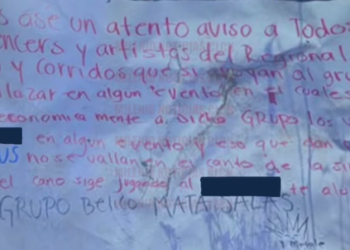 s ase un atento aviso a Todo
ncers y artistas del Regional
y Corridos que s apoyan al gr
lazar en algun evento en el cuales
economia mente a dicho GRUPO los
en algun evento y eso que dan
US no se vallan en el canto de la si
el cano sige jugando al te alo
GRUPO Belico MATASALAS.